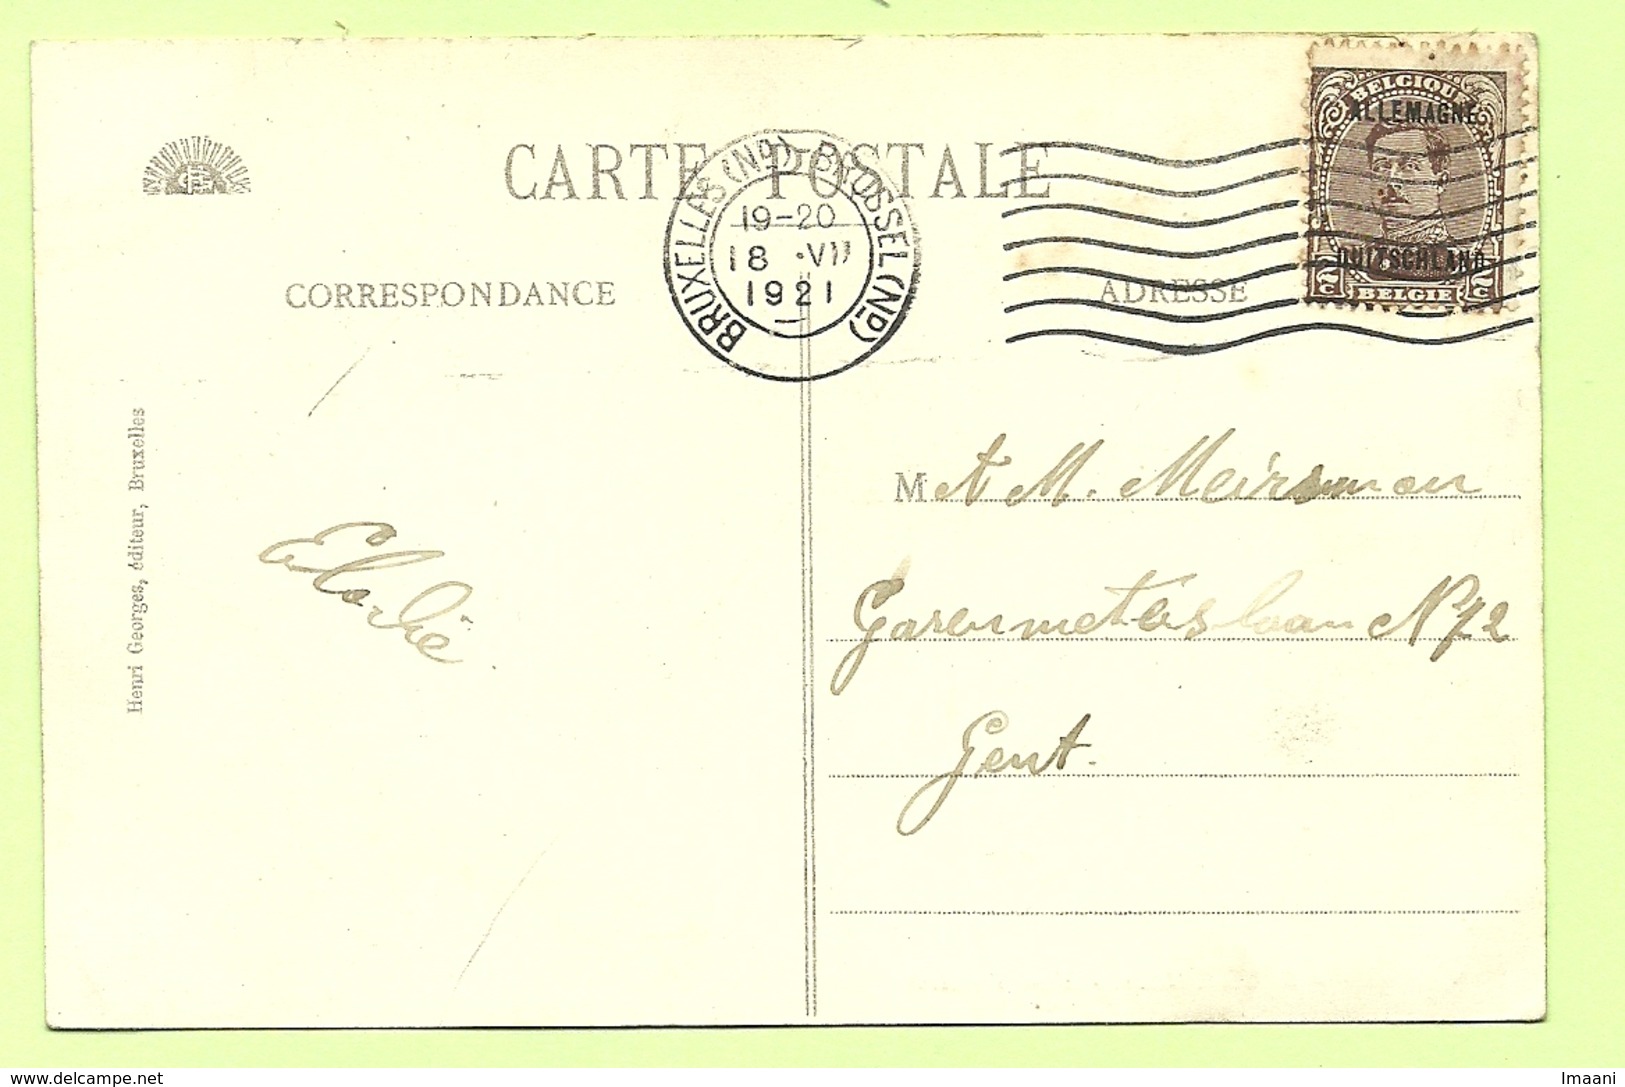 CARTE POSTALE
BRUXELLES (No) BRUSSEL (ND)
19-20
18 VII
1921
BELGIQUE
ALLEMAGNE
DUITSCHLAND
BELGIE
CORRESPONDANCE
ADRESSE
Henri Georges, éditeur, Bruxelles
M
M. Meirsman
N 72
Gent.
Imaani